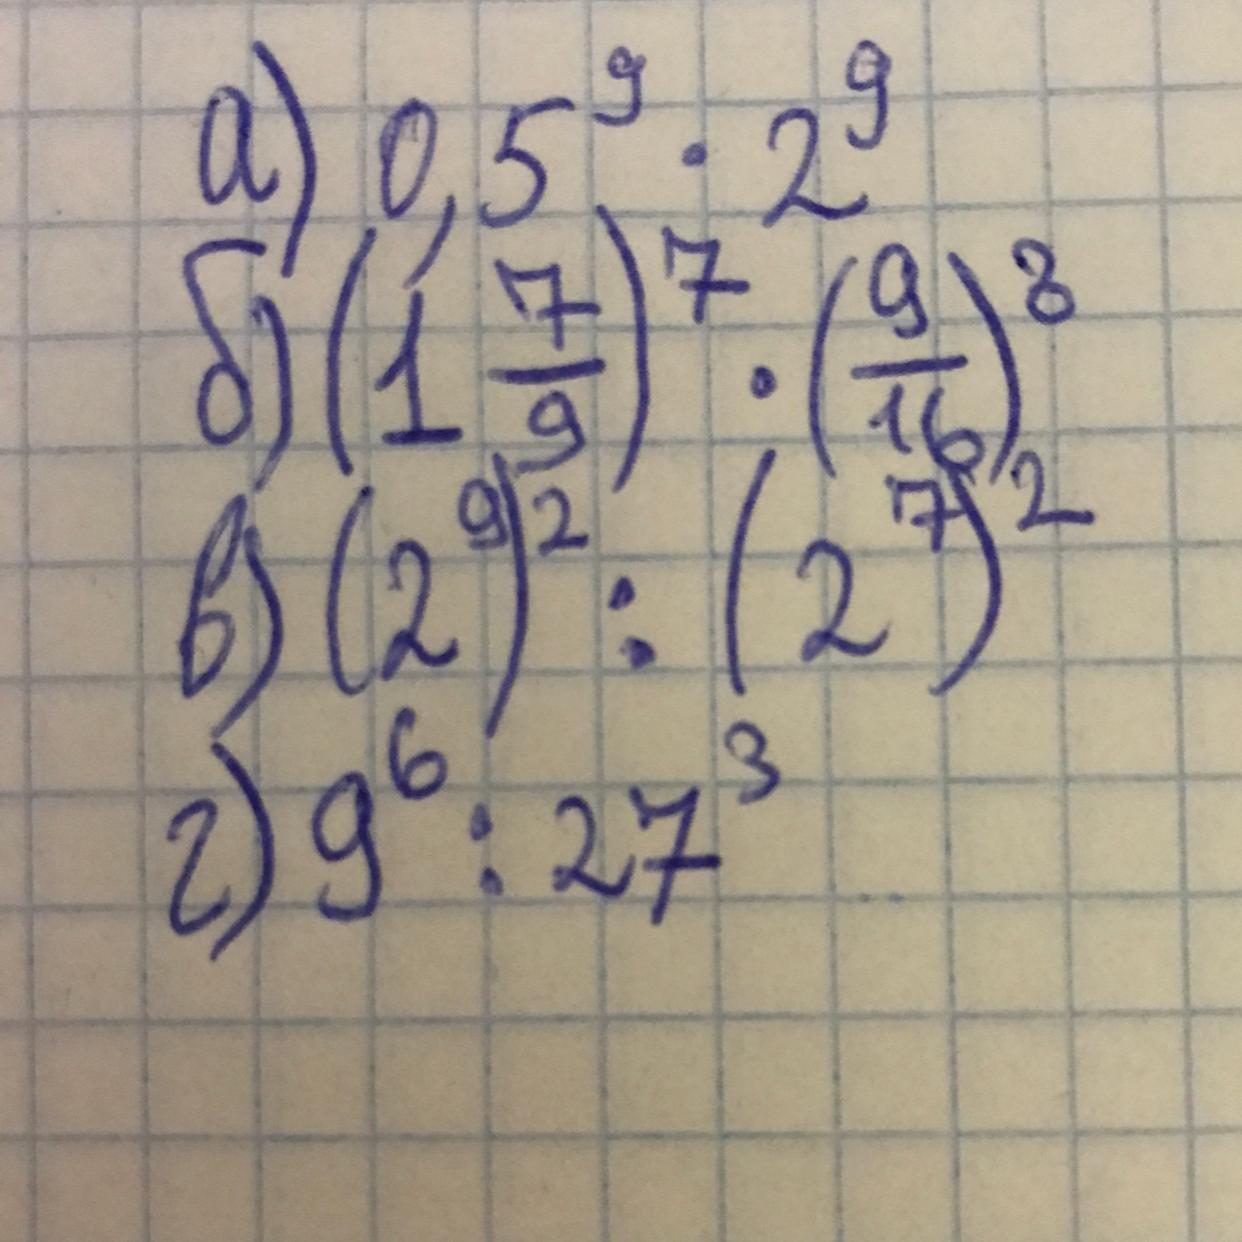 а) 0,5⁹ · 2⁹
б) (1 7/9)⁷ · (9/16)⁸
в) (2⁹)² : (2⁷)²
г) 9⁶ : 27³